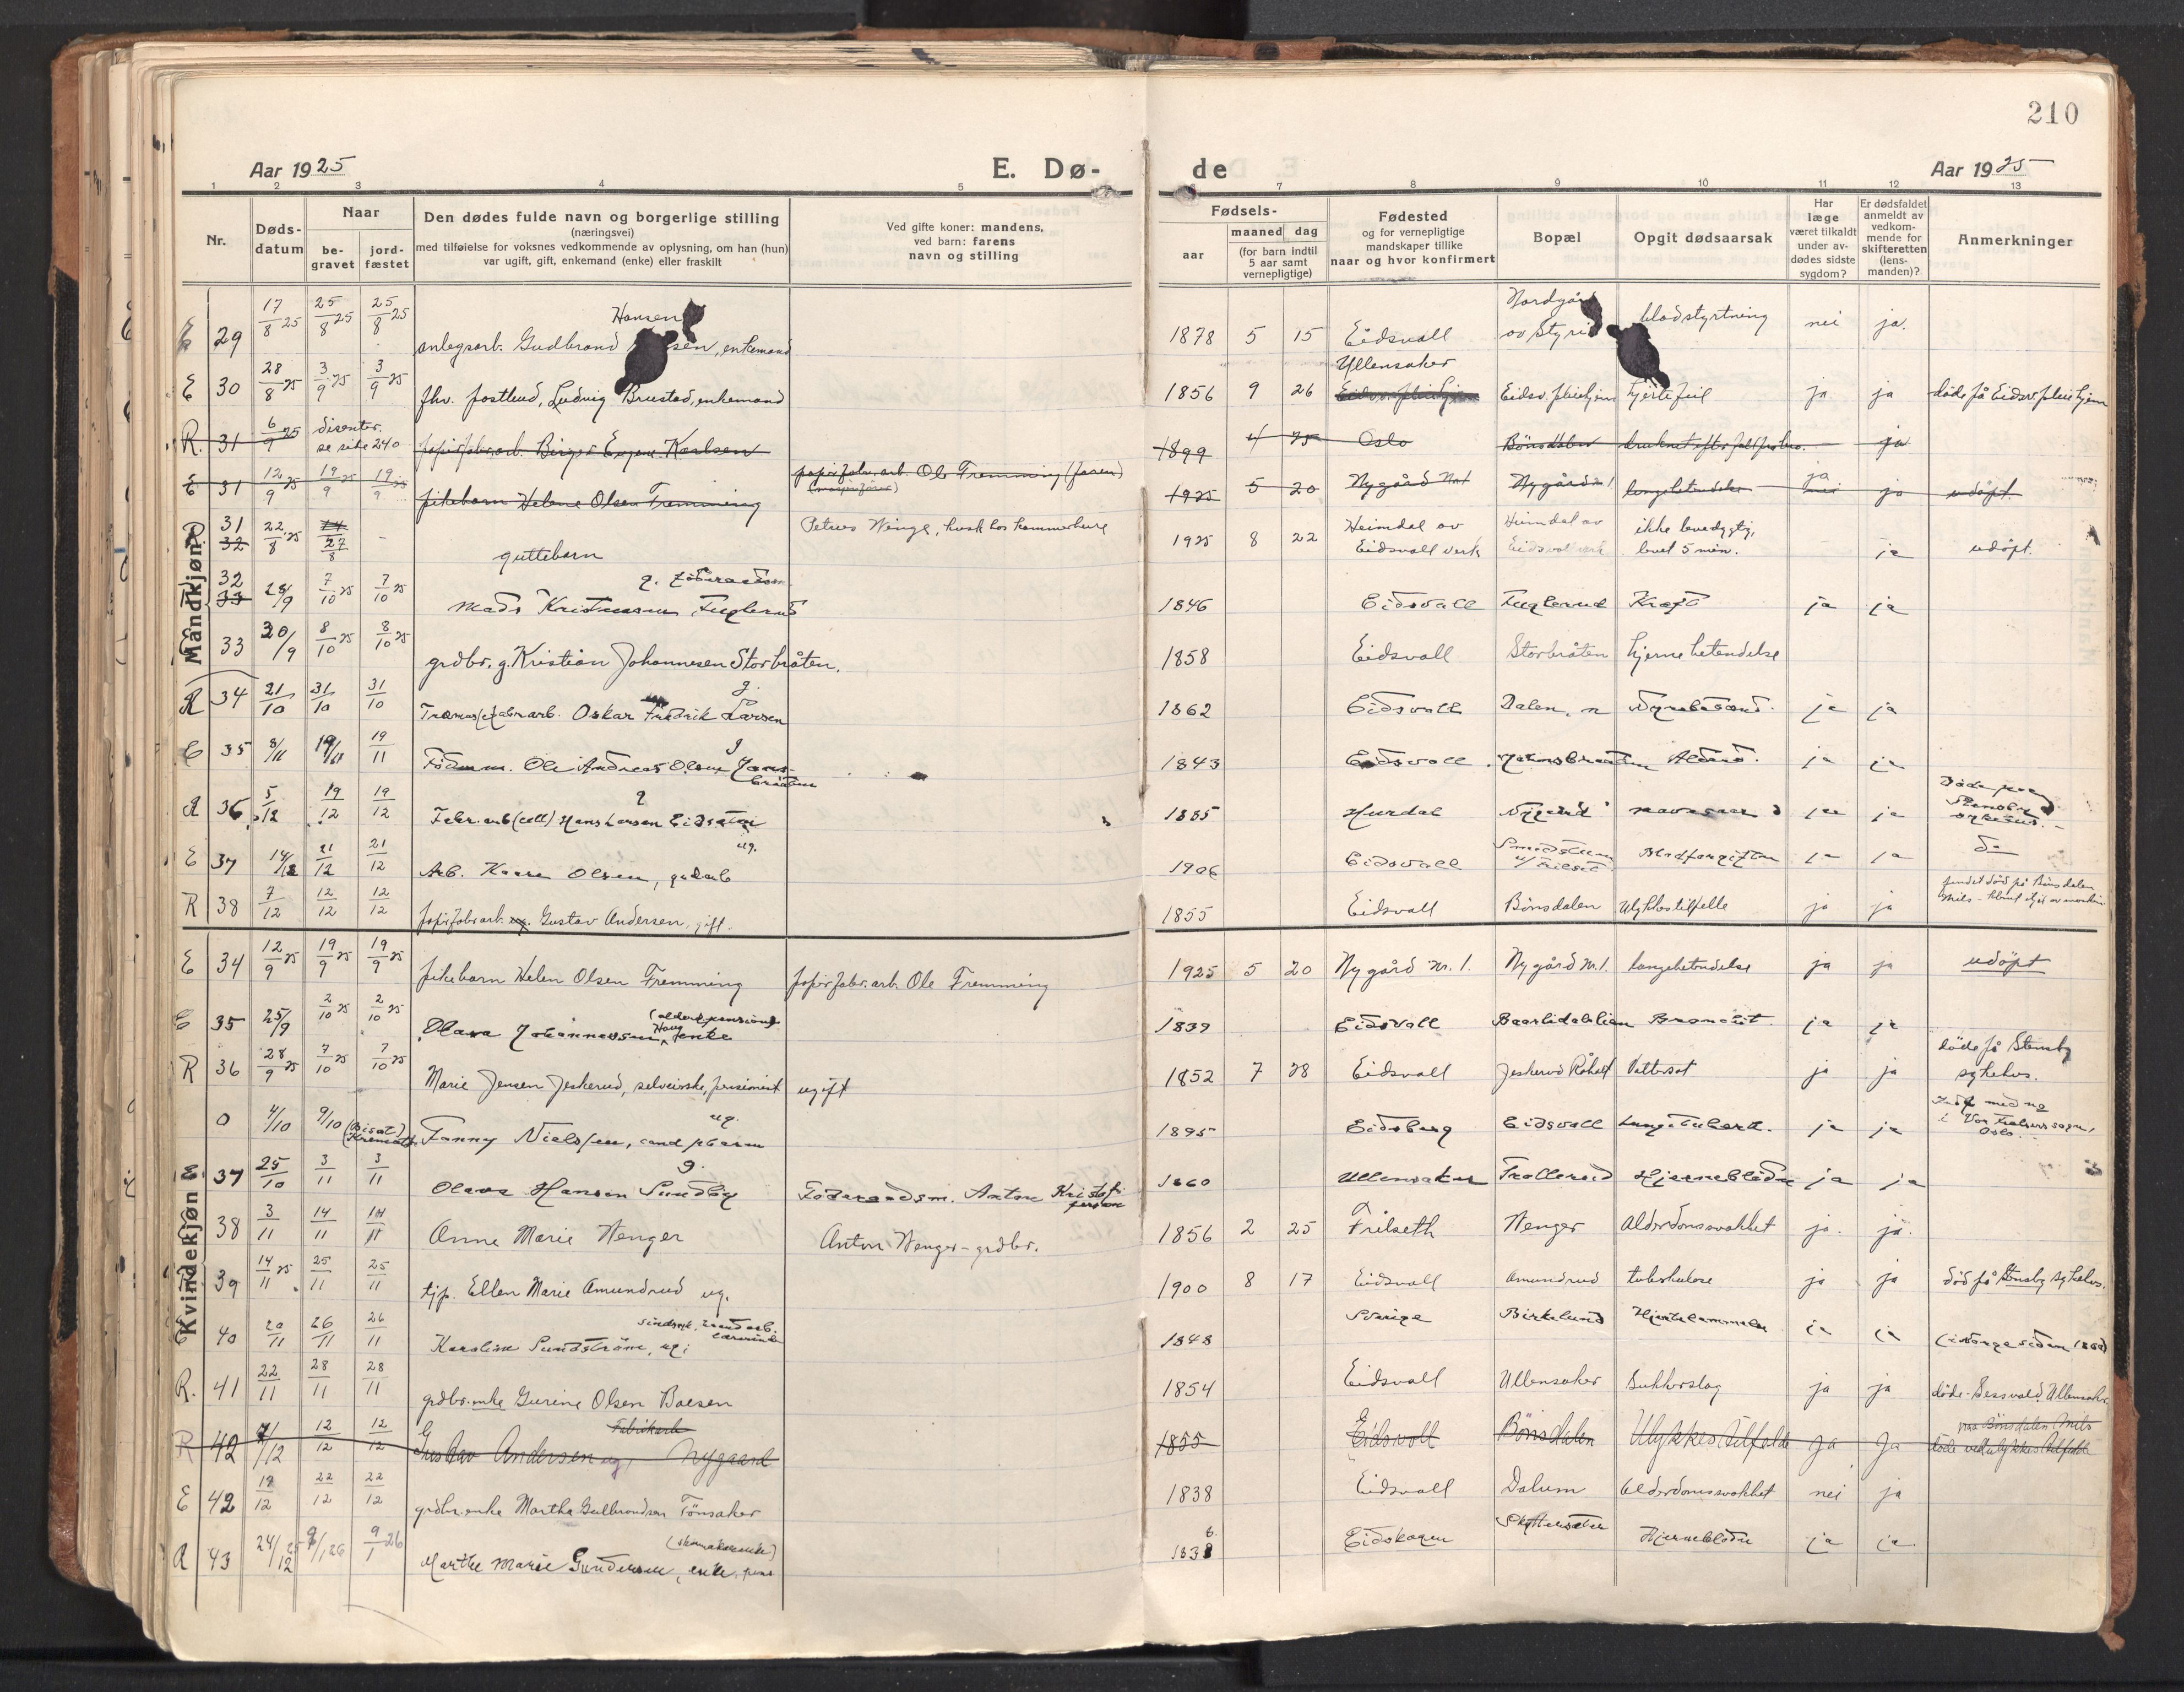 210
Aar 1925 E. Dø- de Aar 1925
1 2 3 4 5 7 8 9 10 11 12 13
Nr.
Døds-
datum
Naar
be-
gravet
jord-
fæstet
Den dødes fulde navn og borgerlige stilling
(næringsvei)
med tilføielse for voksnes vedkommende av oplysning, om han (hun)
var ugift, gift, enkemand (enke) eller fraskilt
Ved gifte koner: mandens,
ved barn: farens
navn og stilling
Fødsels-
aar
maaned dag
(for barn indtil
5 aar samt
vernepligtige)
Fødested
og for vernepligtige
mandskaper tillike
naar og hvor konfirmert
Bopæl
Opgit dødsaarsak
Har
læge
været tilkaldt
under av-
dødes sidste
sygdom?
Er dødsfaldet
anmeldt av
vedkom-
mende for
skifteretten
(lens-
manden)?
Anmerkninger
Mandkjøn
E 29 17/8 25 25/8 25 25/8 25 anlegsarb. Gudbrand Hansen, enkemand 1878 5 15 Eidsvoll Nordgård av Styri blodstyrtning nei ja.
E 30 28/8 25 3/9 25 3/9 25 fhv. postbud, Ludvig Brustad, enkemand 1856 9 26 Ullensaker Eidsv. pleiehjem hjertefeil ja ja døde på Eidsv. pleiehjem
R. 31 6/9 25 disenter. se side 240 papirfabr.arb. Birger Eugen Karlsen 1899 4 25 Oslo Bönsdalen ja
E 31 12/9 25 19/9 25 19/9 25 pikebarn Helene Olsen Fremming papirfabr.arb. Ole Fremming (faren) 1925 5 20 Nygård Nr 1 Nygård n 1 lungebetendelse ja nei ja udøpt.
31 32 22/8 25 27/8 - guttebarn Petrus Winge, husk hos kammerherre 1925 8 22 Heimdal av Eidsvoll verk Heimdal av Eidsvoll verk ikke levedygtig, levet 5 min. ja udøpt.
32 33 28/9 7/10 25 7/10 25 Mads Kristiansen Fuglerud g. 1846 Eidsvoll Fuglerud Kræft ja ja
33 30/9 8/10 25 8/10 25 grdbr. g. Kristian Johannesen Storbråten. 1858 Eidsvoll Storbråten hjernebetendelse
R 34 21/10 31/10 31/10 Oskar Fredrik Larsen g. 1862 Eidsvoll Dalen ja ja
E 35 8/11 19/11 19/11 Ole Andreas Olsen g 1843 Eidsvoll ja ja
R 36 5/12 19/12 19/12 Fabr.arb (cell) Hans Larsen g 1855 Hurdal Nygaard mavesaar ja ja Døde paa Stensby sykehus.
E 37 14/12 21/12 21/12 Arb. Kaare Olsen, ug. 1906 Eidsvoll Blodforgiftn ja ja do
R 38 7/12 12/12 12/12 papirfabr.arb. Gustav Andersen, gift. 1855 Eidsvoll Bönsdalen Ulykkestilfelle ja ja fundet død på Bönsdalen Mils
Kvindekjøn
E 34 12/9 25 19/9 25 19/9 25 pikebarn Helen Olsen Fremming papirfabr.arb. Ole Fremming 1925 5 20 Nygård Nr. 1. Nygård Nr. 1. lungebetendelse ja ja udøpt
E 35 25/9 2/10 25 2/10 25 Olava Johannessen Haug, enke (alderspensionist) 1839 Eidsvoll Baarlidalslien Bronchit. ja ja
R 36 28/9 25 7/10 25 7/10 25 Marie Jensen Jeskerud, selveierske, pensionist ugift 1852 7 28 Eidsvoll Jeskerud Råholt Vattersot ja ja døde på Stensby sykehus.
0 4/10 9/10 (Bisat) Fanny Nielssen, cand pharm ug. 1895 Eidsberg Eidsvoll Lungetuberk. ja ja i Vor Frelsers sogn, Oslo.
E 37 25/10 3/11 3/11 Olava Hansen Sundby g. Föderaadsm. Anton Kristofersen 1860 Ullensaker Trollerud Hjerneblödn ja ja
38 3/11 14/11 14/11 Anne Marie Wenger Anton Wenger - grdbr. 1856 2 25 Frilseth Wenger Alderdomssvakhet ja. ja.
39 14/11 25 25/11 25/11 tjp. Ellen Marie Amundrud ug. 1900 8 17 Eidsvoll Amundrud tuberkulose ja ja død på Stensby sykehus.
40 20/11 26/11 26/11 Karoline Sundström, ug; 1848 Sverige Birkelund Hjertelammelse ja ja
R. 41 22/11 28/11 28/11 grdbr.enke Gurine Olsen Boesen 1854 Eidsvoll Ullensaker Sukkersyg ja ja døde - Sessvold, Ullensaker
R 42 7/12 12/12 12/12 Gustav Andersen ug, Nygaard Fabrikarb 1855 Eidsvoll Bönsdalen Ulykkestilfælde ja ja paa Bönsdalen Mils döde ved ulykkestilfælde
E 42 18/12 22/12 22/12 grdbr.enke Martha Gulbrandsen Tönsaker 1838 Eidsvoll Dalum Alderdomssvakhet nei ja
R 43 24/12 25 9/1 26 9/1 26 Marthe Marie Gundersen, enke, pens (skomakerenke) 1838 Eidskogen Hjerneblödn ja ja